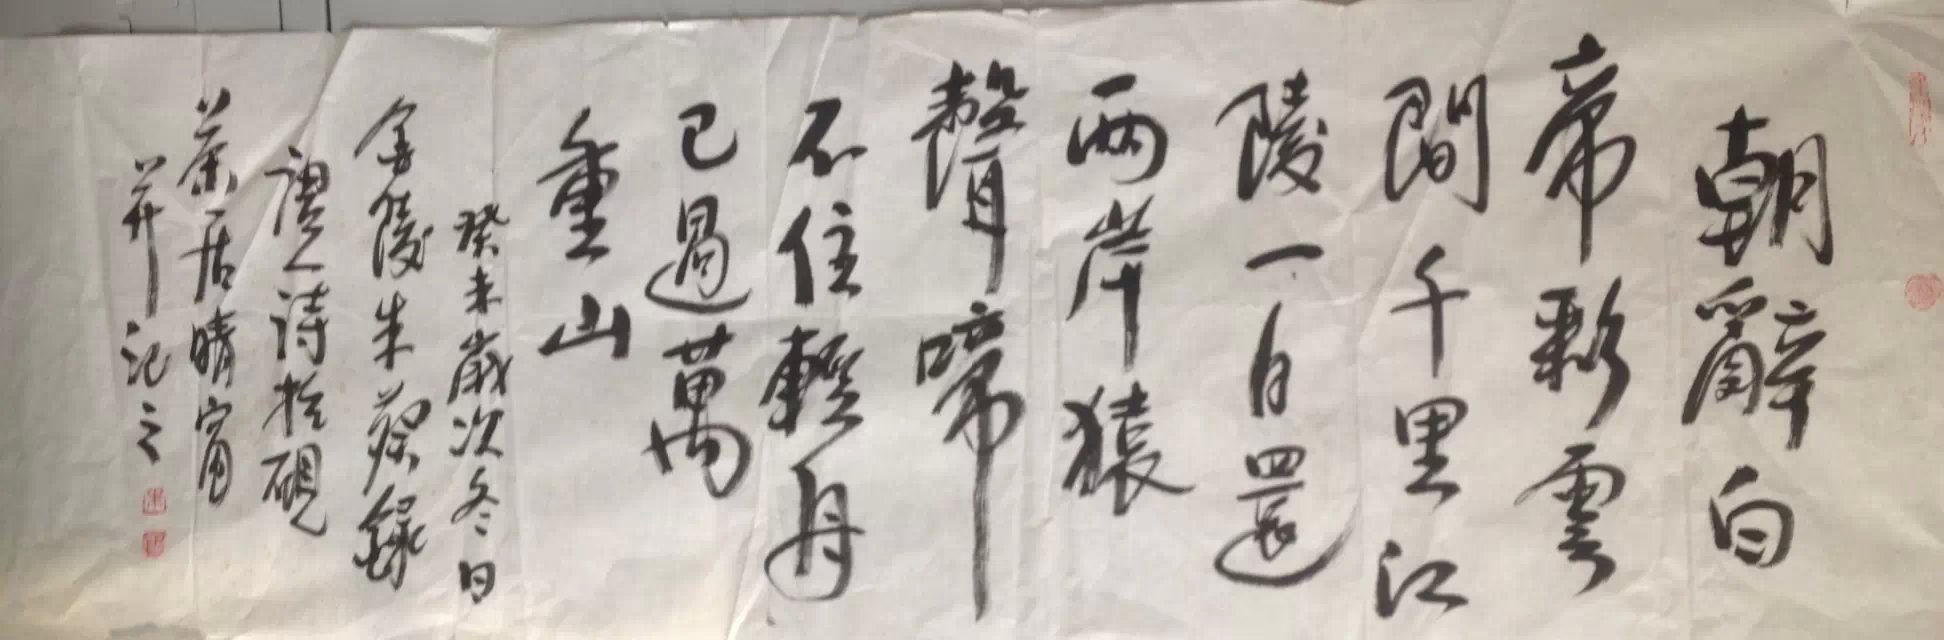 朝辭白
帝彩雲
間千里江
陵一日還
兩岸猿
聲啼
不住輕舟
已過萬
重山
癸未歲次冬日
金陵朱葵錄
唐人詩於硯
茶居晴窗
並記之